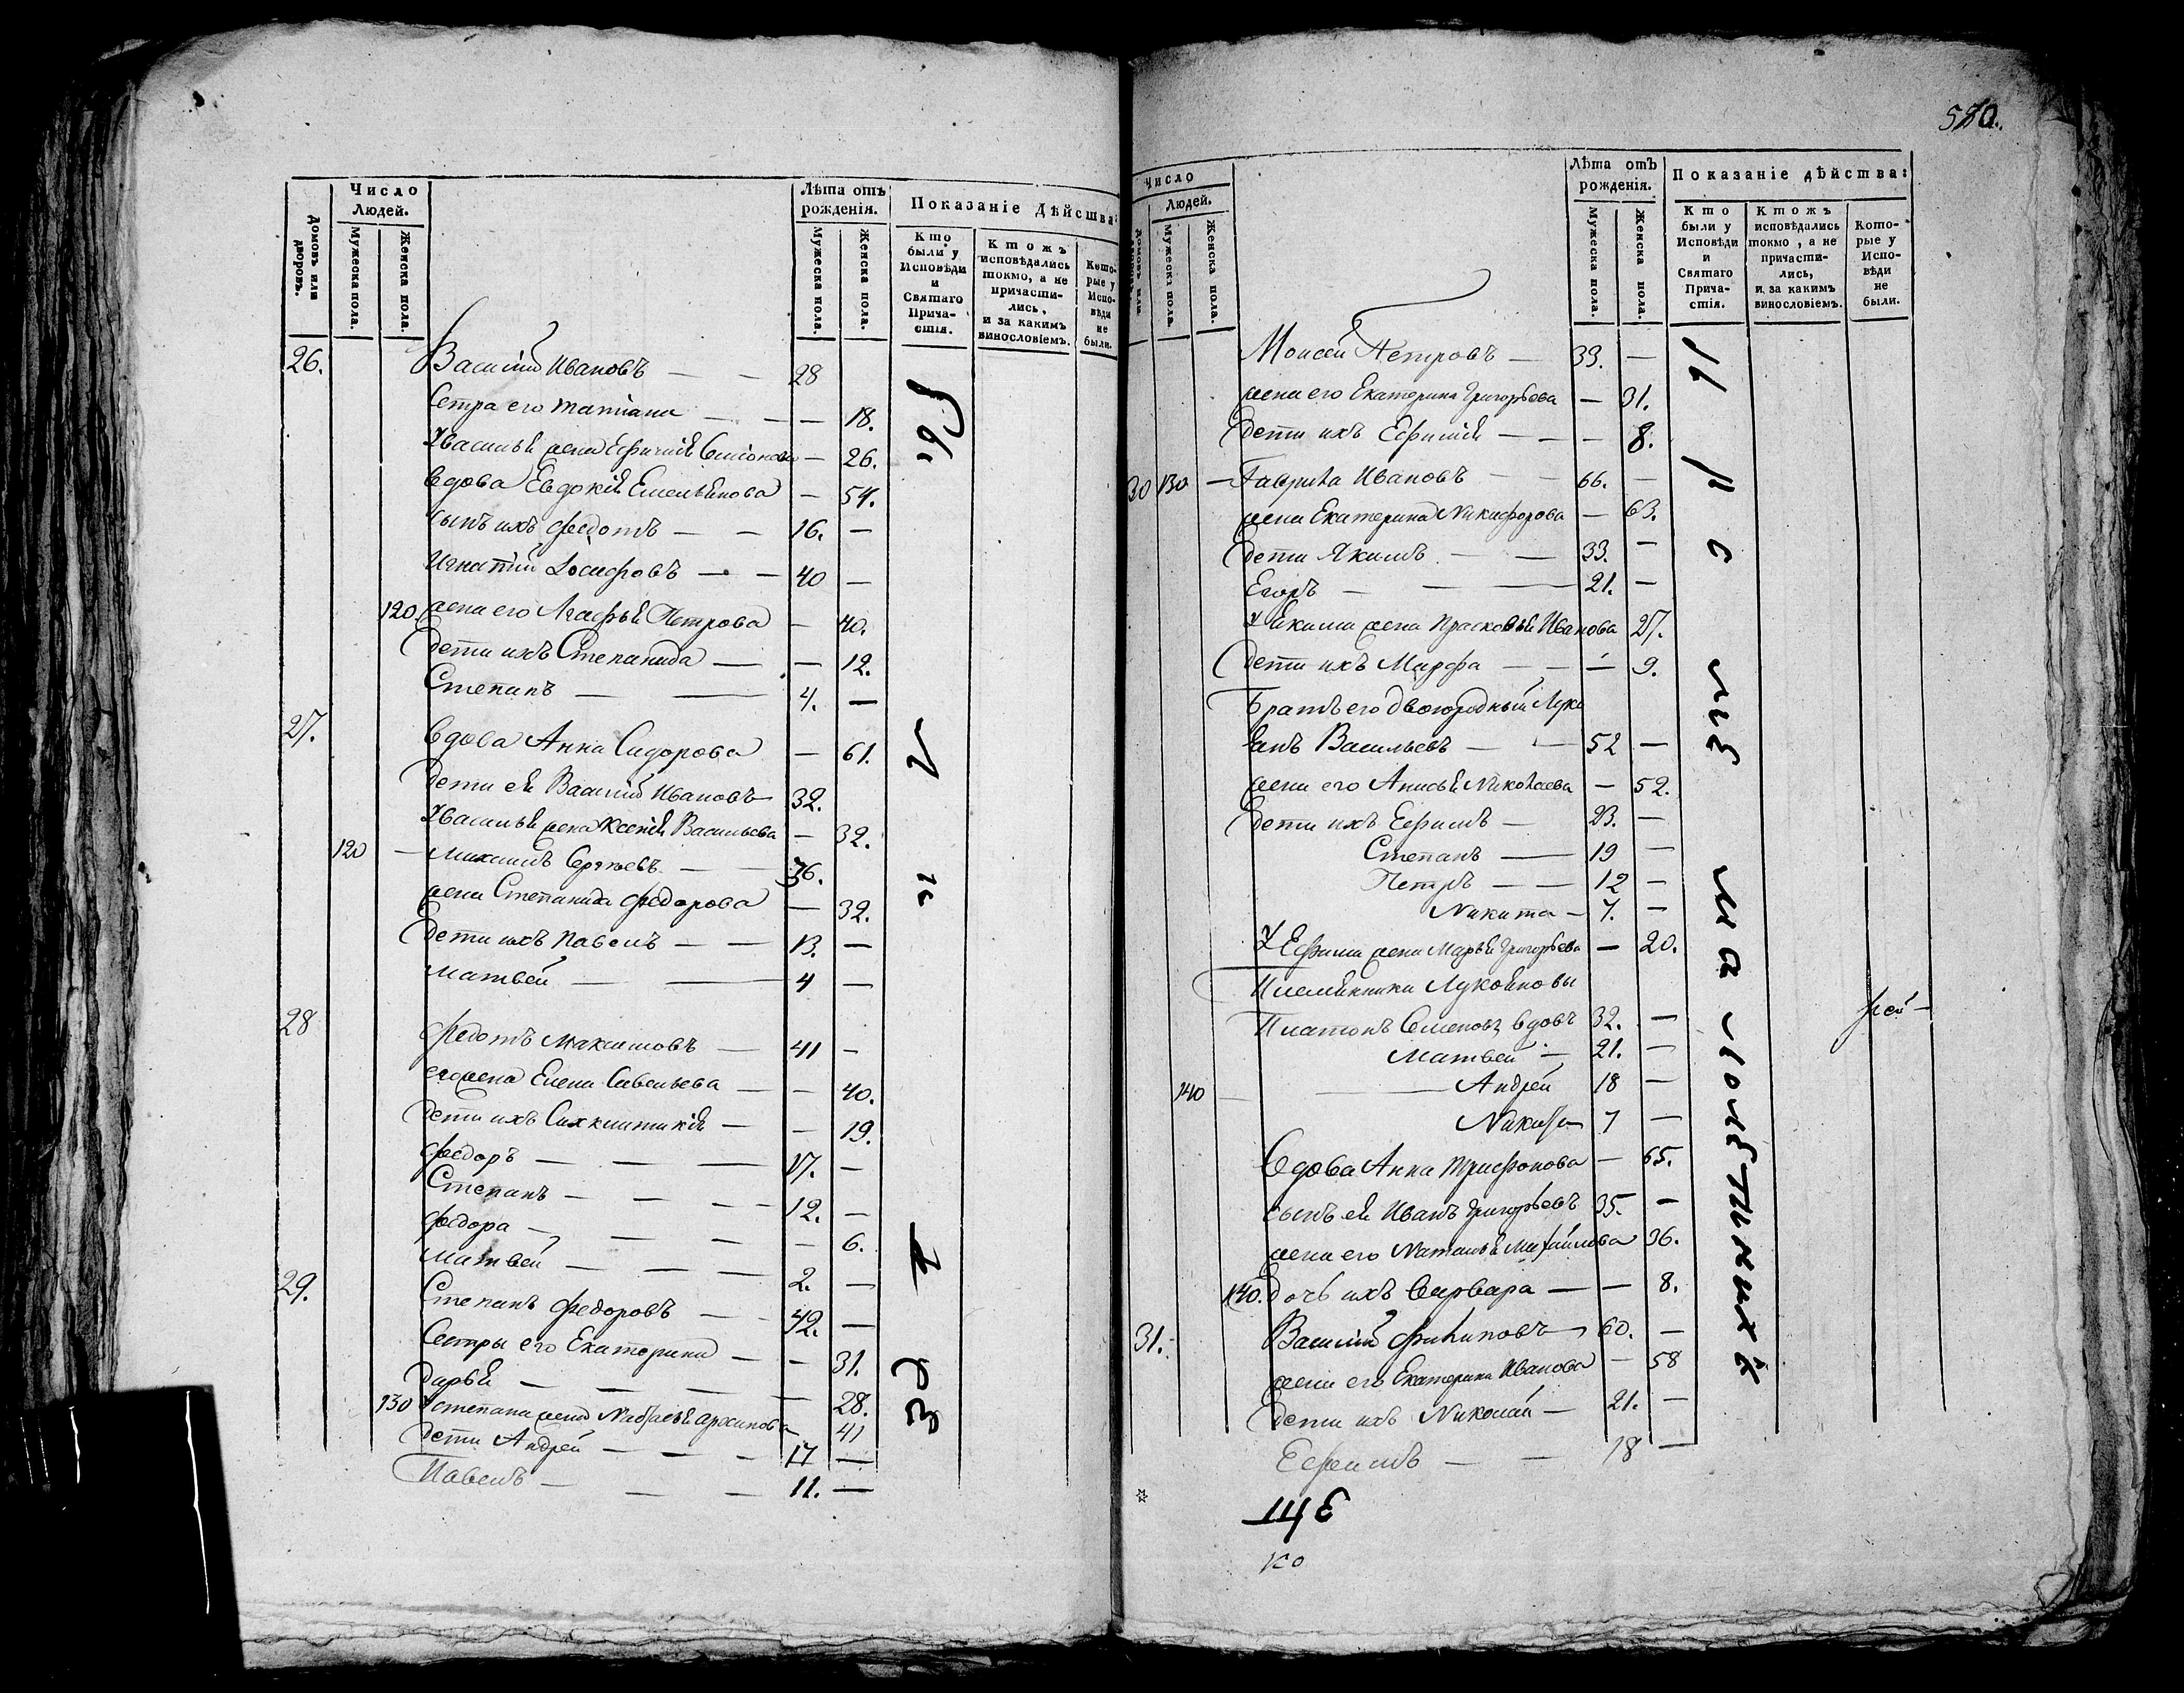 Домовъ или дворовъ.
Число Людей.
Мужеска пола.
Женска пола.
Лѣта отъ рожденія.
Мужеска пола.
Женска пола.
Показаніе Дѣйства:
Кто были у Исповѣди и Святаго Прича- стія.
Ктожъ исповѣдались токмо, а не причасти- лись, и за какимъ винословіемъ.
Кото- рые у Испо- вѣди не были.
26. Василій Ивановъ — — 28
Сетра его Татіана — — — 18.
У Василья жена Ефимія Симіонова — 26.
Вдова Евдокія Емельянова — 54.
Сынъ ихъ Федотъ — — 16. —
Игнатій Іосифовъ — — 40 —
120. жена его Агафья Петрова — 40.
Дети ихъ Степанида — — 12.
Степанъ — — 4. —
27. Вдова Анна Сидорова — 61.
Дети ея Василій Ивановъ 32.
У Василья жена Ксенія Васильева — 32.
120 — Максимъ Сергѣевъ — — 36.
жена Степанида Федорова — 32.
Дети ихъ Павелъ — — 13. —
Матвей — — 4 —
28 Федотъ Максимовъ — 41 —
его жена Елена Савельева — — 40.
Дети ихъ — — 19.
Федоръ — — — 17. —
Степанъ — — — 12. —
Федора — — — — 6.
Матвей — — — 2. —
29. Степанъ Федоровъ — — 42. —
Сестры его Екатерина — — 31.
Дарья — — — — 28.
130 У Степана жена Архипова 41
Дети Андрей — — — 17 —
Павелъ — — — 11. —
580.
Число Людей.
Домовъ или
Мужеска пола.
Женска пола.
Лѣта отъ рожденія.
Мужеска пола.
Женска пола.
Показаніе дѣйства:
Кто были у Исповѣди и Святаго Прича- стія.
Ктожъ исповѣдались токмо, а не причасти- лись, и за какимъ винословіемъ.
Кото- рые у Испо- вѣди не были.
Моисей Петровъ — 33. —
жена его Екатерина Григорьева — 31.
Дети ихъ Ефимія — — — 8.
30 130 — Гаврила Ивановъ — — 66. —
жена Екатерина Никифорова — 63.
Дети Якимъ — — 33. —
Егоръ — — 21. —
У Якима жена Прасковья Иванова 27.
Дети ихъ Марфа — — — 9.
Братъ его двоюродный Лукі
янъ Васильевъ — — 52 —
жена его Анисья Николаева — 52.
Дети ихъ Ефимъ — 23. —
Степанъ — 19 —
Петръ — — 12 —
Никита — 7. —
У Ефима жена Марья Григорьева — 20.
Племянники Лукояновы
Платонъ Семеновъ вдовъ 32. —
Матвей — 21. —
140 — Андрей 18 —
Никита 7 —
Вдова Анна Трифонова — 65.
сынъ ея Иванъ Григорьевъ 35. —
жена его Наталья Михайлова 36.
140. Дочь ихъ Варвара — — 8.
31. Василій Филиповъ — 60. —
жена его Екатерина Иванова — 58
Дети ихъ Николай — 21. —
Ефимъ — — 18 —
ко